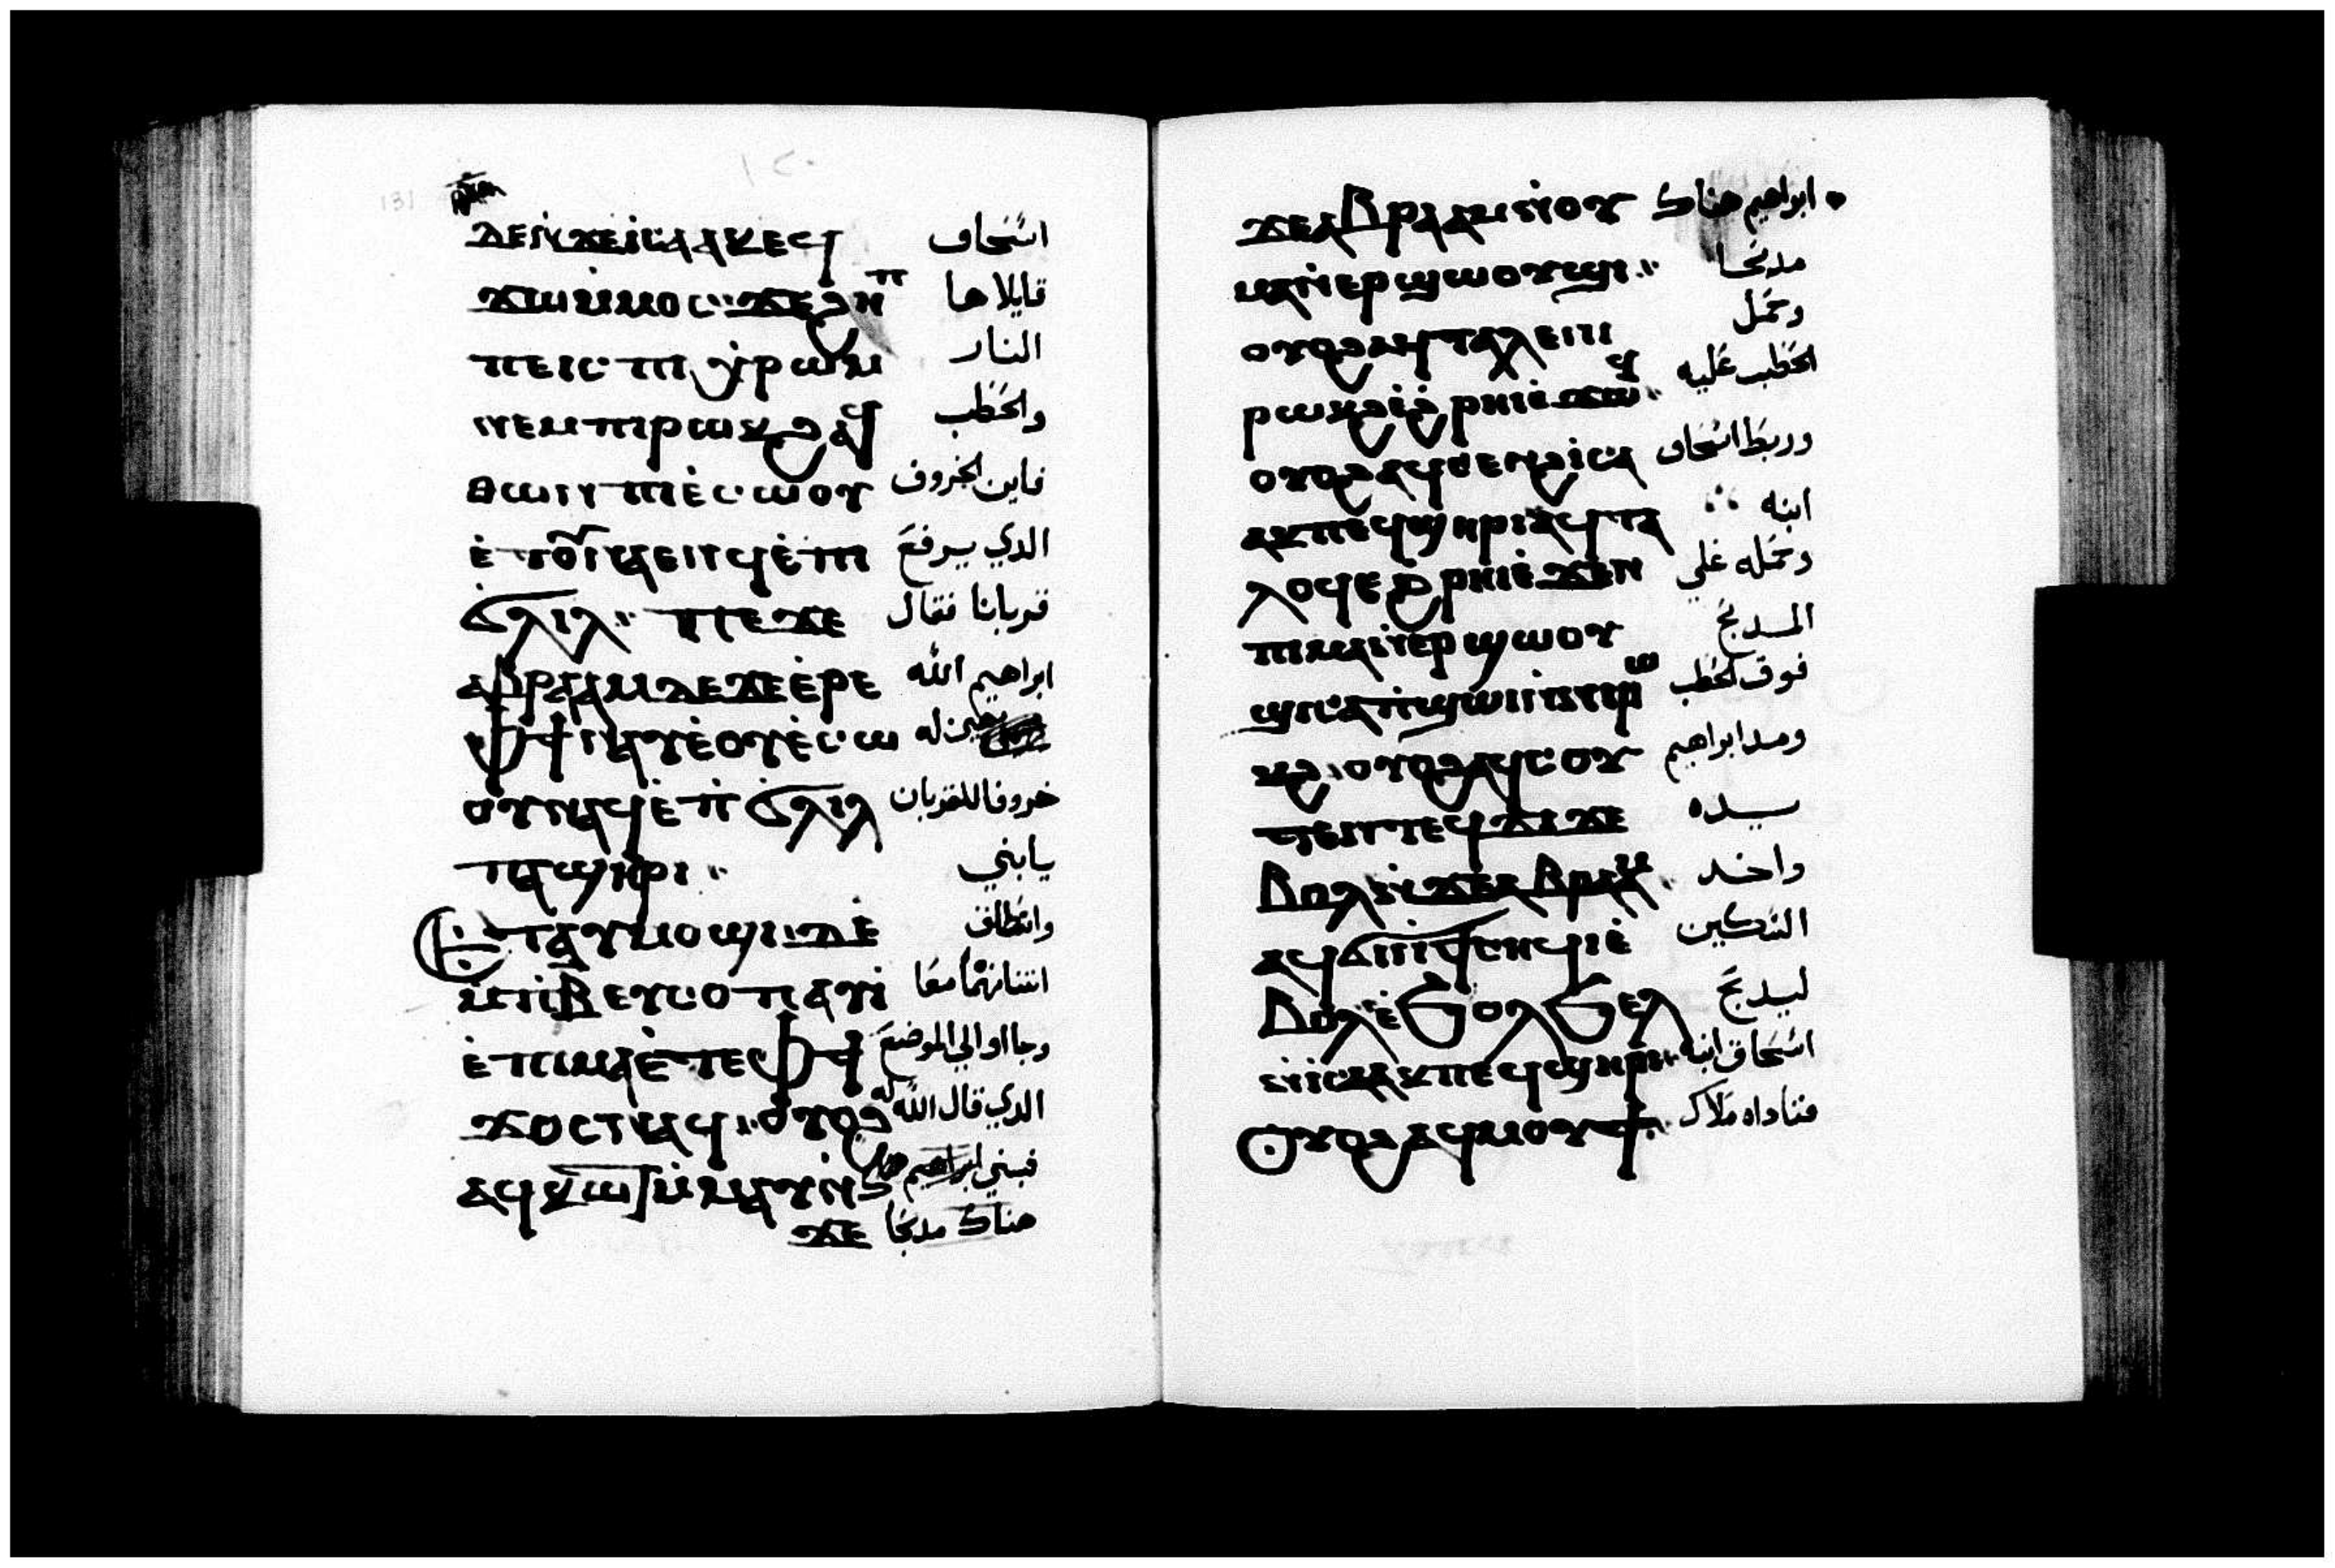 ⲇⲉⲛϫⲉⲓⲥⲁⲁⲕⲉϥ اسحاق
ϫⲱⲙ̀ⲙⲟⲥ ϫⲉϩⲏⲡ قايلا ها
ⲡⲉⲓⲥ ⲡⲓⲭ̀ⲣⲱⲙ النار
ⲛⲉⲙⲡⲓⲣⲱⲕϩ ⲁϥ والحطب
ⲑⲱⲛ ⲡⲓⲉ̀ⲥⲱⲟⲩ فاين الخروف
ⲉ̀ⲧⲟⲩⲛⲁⲉⲛϥ ⲉ̀ⲡⲓ الدي يرفع
ϭⲗⲓⲗ ⲡⲉϫⲉ قربانا فقال
ⲁⲃⲣⲁⲁⲙ ⲇⲉ ϫⲉ ⲉ̀ⲣⲉ ابراهيم الله
ⲫϯ ⲛⲁⲩ ⲉ̀ⲟⲩⲉ̀ⲥⲱ له
ⲟⲩ ⲛⲁϥ ⲉ̀ⲡ̀ϭⲗⲓⲗ خروفا للقربان
ⲡⲁϣⲏⲣⲓ يا بني
ⲉⲧⲁⲩⲙⲟϣⲓ ⲇⲉ وانطلق
ⲙ̀ⲡⲓⲃ ⲉⲩⲥⲟⲡ ⲁⲩⲓ̀ اتنانهما معا
ⲉ̀ⲡⲓⲙⲁ ⲉ̀ⲧⲉ ⲫϯ وجااوا الي الموضع
ϫⲟⲥ ⲛⲁϥ ⲟⲩⲟϩ الدي قال الله له
ⲁϥⲕⲱⲧ ⲙ̀ⲙⲁⲩ ⲛ̀ فبني ابراهيم
ϫⲉ هناك مدبحا
ϫⲉⲁⲃⲣⲁⲁⲙ ⲛ̀ⲟⲩ ابراهيم هناك
ⲙⲁⲛ̀ⲉⲣϣⲱⲟⲩϣⲓ مدبحا
ⲟⲩⲟϩ ⲁϥⲧⲁⲗⲉ ⲡⲓ وحمل
ⲣⲱⲕϩ ⲉ̀ϩ̀ⲣⲏⲓ ⲉ̀ϫⲱϥ الحطب عليه
ⲟⲩⲟϩ ⲁϥⲥⲉⲛϩ ⲓ̀ⲥⲁ وربط اسحاق
ⲁⲕ ⲡⲉϥϣⲏⲣⲓ ⲁϥⲧⲁ ابنه
ⲗⲟϥ ⲉϩ̀ⲣⲏⲓ ⲉ̀ϫⲉⲛ وحمله علي
ⲡⲓⲙⲁⲛ̀ⲉⲣϣⲱⲟⲩ المدبح
ϣⲓ ⲥⲁⲡ̀ϣⲱⲓ ⲙ̀ⲡⲓⲣⲱ فوق الحطب
ⲕϩ ⲟⲩⲟϩ ⲁϥⲥⲟⲩ ومد ابراهيم
ⲧⲉⲛ ⲧⲉϥϫⲓϫ يده
ⲉⲃⲟⲗ ⲛ̀ϫⲉ ⲁⲃⲣⲁⲁⲙ واخد
ⲁϥϭⲓ ⲛ̀ϯⲥⲏϥⲓ ⲉ̀ السكين
ϧⲟⲗϧⲉⲗ ليدبح
ⲛ̀ⲓⲥⲁⲁⲕ ⲡⲉϥϣⲏⲣⲓ اسحاق ابنه
ⲟⲩⲟϩ ⲁϥⲙⲟⲩϯ فناداه ملاك